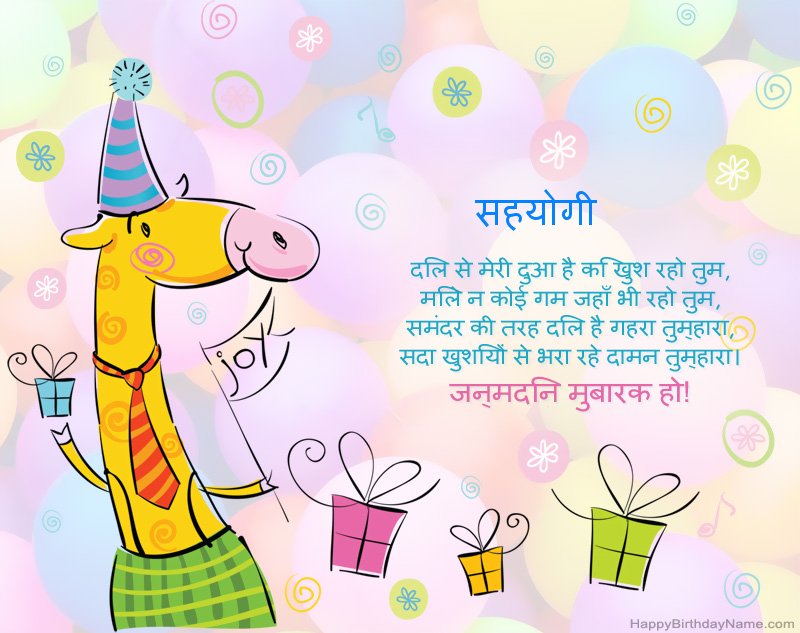 सहयोगी
दलि से मेरी दुआ है कि खुश रहो तुम,
मलिे न कोई गम जहाँ भी रहो तुम,
समंदर की तरह दलि है गहरा तुम्‌हारा,
सदा खुशयिों से भरा रहे दामन तुम्‌हारा।
जन्‌मदनि मुबारक हो!
joy
HappyBirthdayName.com